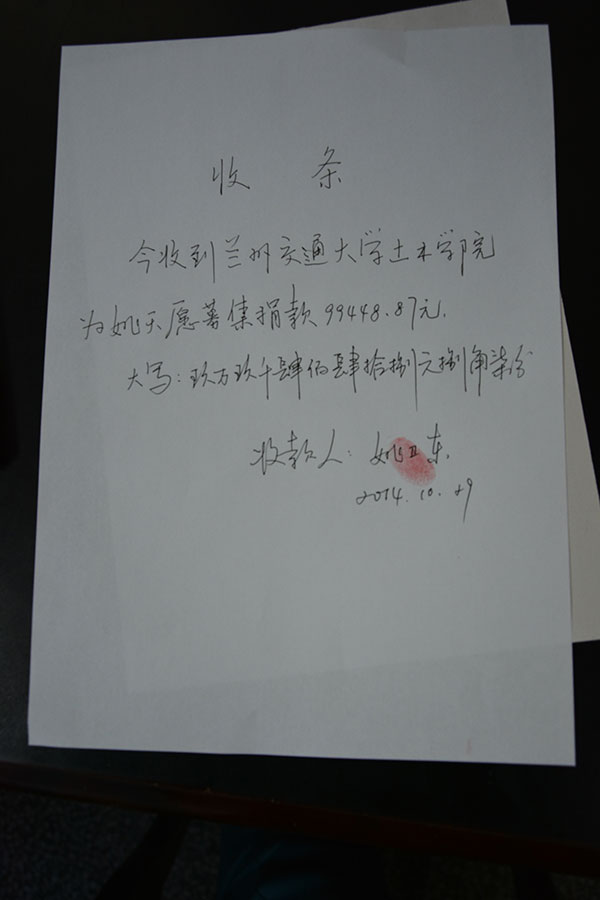 收 条
今收到兰州交通大学土木学院
为姚天愿募集捐款99448.87元.
大写：玖万玖千肆佰肆拾捌元捌角柒份
收款人：姚卫东.
2014.10.29